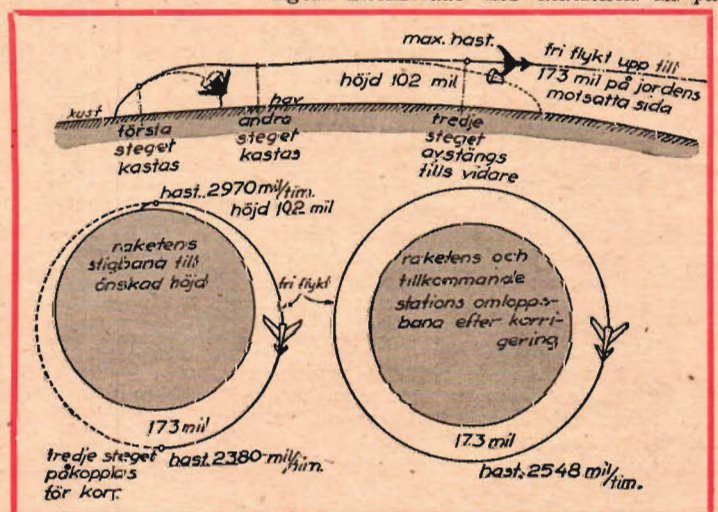 max. hast.
fri flykt upp till
173 mil på jordens
motsatta sida
höjd 102 mil
kust
hav
första
steget
kastas
andra
steget
kastas
tredje
steget
avstängs
tills vidare
hast. 2970 mil/tim.
höjd 102 mil
raketens
stigbana till
önskad höjd
fri flykt
173 mil
tredje steget
påkopplas
för korr.
hast. 2380 mil/tim.
raketens och
tillkommande
stations omlopps-
bana efter korri-
gering
173 mil
hast. 2548 mil/tim.